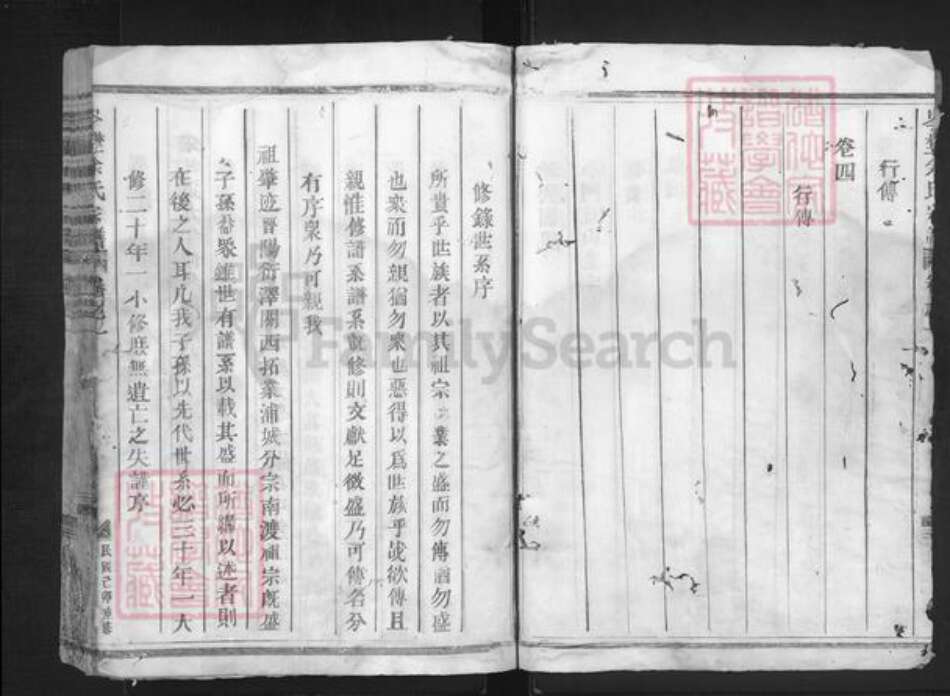 行傳
卷四
行傳
修錄世系序
所貴乎世族者以其祖宗業之盛而勿傳猶勿盛
也衆而勿親猶勿衆也惡得以爲世族乎哉欲傳且
親惟修譜系譜系旣修則文獻足徵盛乃可傳名分
有序衆乃可親我
祖肇迹晋陽衍澤關西拓業浦城分宗南渡祖宗旣盛
子孫益衆雖世有譜系以載其盛而所謂以述者則
在後之人耳凡我子孫以先代世系必三十年一大
修二十年一小修庶無遺亡之失謹序
民國己卯
余氏宗譜
FamilySearch